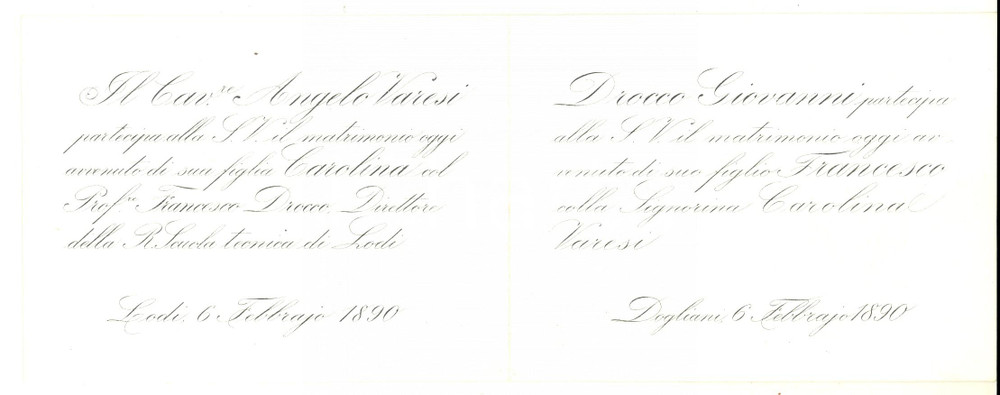 Il Cav.re Angelo Varesi
partecipa alla S. V. il matrimonio oggi
avvenuto di sua figlia Carolina col
Prof.re Francesco Drocco, Direttore
della R. Scuola tecnica di Lodi
Lodi, 6 Febbrajo 1890
Drocco Giovanni partecipa
alla S. V. il matrimonio oggi av
venuto di suo figlio Francesco
colla Signorina Carolina
Varesi
Dogliani, 6 Febbrajo 1890